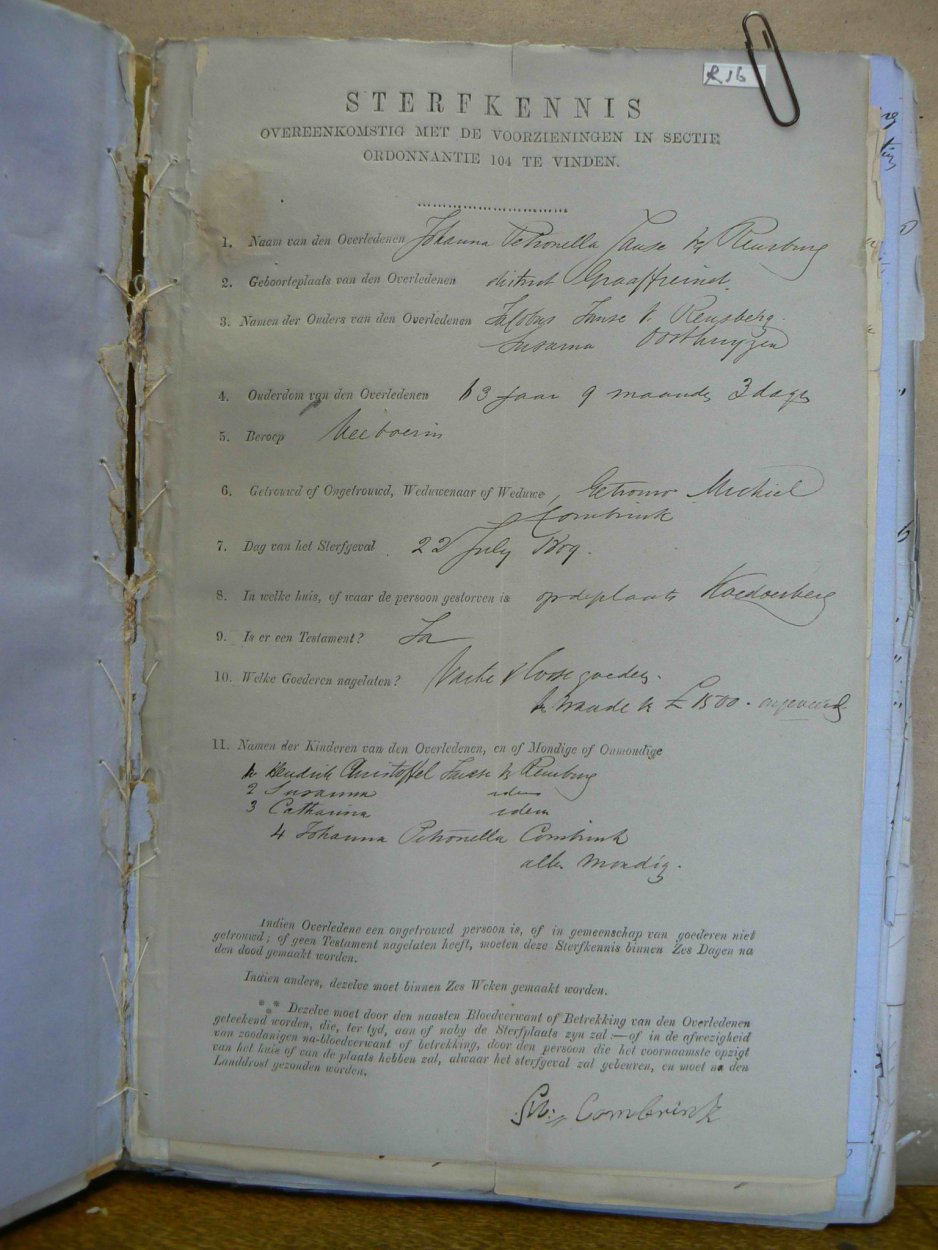 R 16
STERFKENNIS
OVEREENKOMSTIG MET DE VOORZIENINGEN IN SECTIE
ORDONNANTIE 104 TE VINDEN.
1. Naam van den Overledenen Johanna Petronella Janse v Rensburg
2. Geboorteplaats van den Overledenen district Graaffreinet.
3. Namen der Ouders van den Overledenen Jacobus Janse v Rensberg
Susanna Oosthuyzen
4. Ouderdom van den Overledenen 63 Jaar 9 maande 3 dage
5. Beroep Veeboerin
6. Getrouwd of Ongetrouwd, Weduwenaar of Weduwe, Getrouw Michiel
Combrink
7. Dag van het Sterfgeval 22 July
8. In welke huis, of waar de persoon gestorven is op de plaats Koedoesberg
9. Is er een Testament? Ja
10. Welke Goederen nagelaten? Vaste & losse goedere.
ter waarde v £1500.
11. Namen der Kinderen van den Overledenen, en of Mondige of Onmondige
1 Hendrik Christoffel Janse v Rensburg
2 Susanna idem
3 Catharina idem
4 Johanna Petronella Combrink
alle mondig.
Indien Overledene een ongetrouwd persoon is, of in gemeenschap van goederen niet
getrouwd; of geen Testament nagelaten heeft, moeten deze Sterfkennis binnen Zes Dagen na
den dood gemaakt worden.
Indien anders, dezelve moet binnen Zes Weken gemaakt worden.
*** Dezelve moet door den naasten Bloedverwant of Betrekking van den Overledenen
geteekend worden, die, ter tyd, aan of naby de Sterfplaats zyn zal:—of in de afwezigheid
van zoodanigen na-bloedverwant of betrekking, door den persoon die het voornaamste opzigt
van het huis of van de plaats hebben zal, alwaar het sterfgeval zal gebeuren, en moet na den
Landdrost gezonden worden.
Combrink